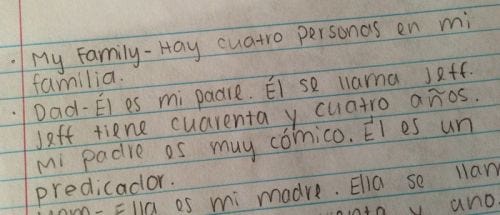 · My Family - Hay cuatro personas en mi
familia.
· Dad - Él es mi padre. Él se llama Jeff.
Jeff tiene cuarenta y cuatro años.
Mi padre es muy cómico. Él es un
predicador.
Ella es mi madre. Ella se llam
y